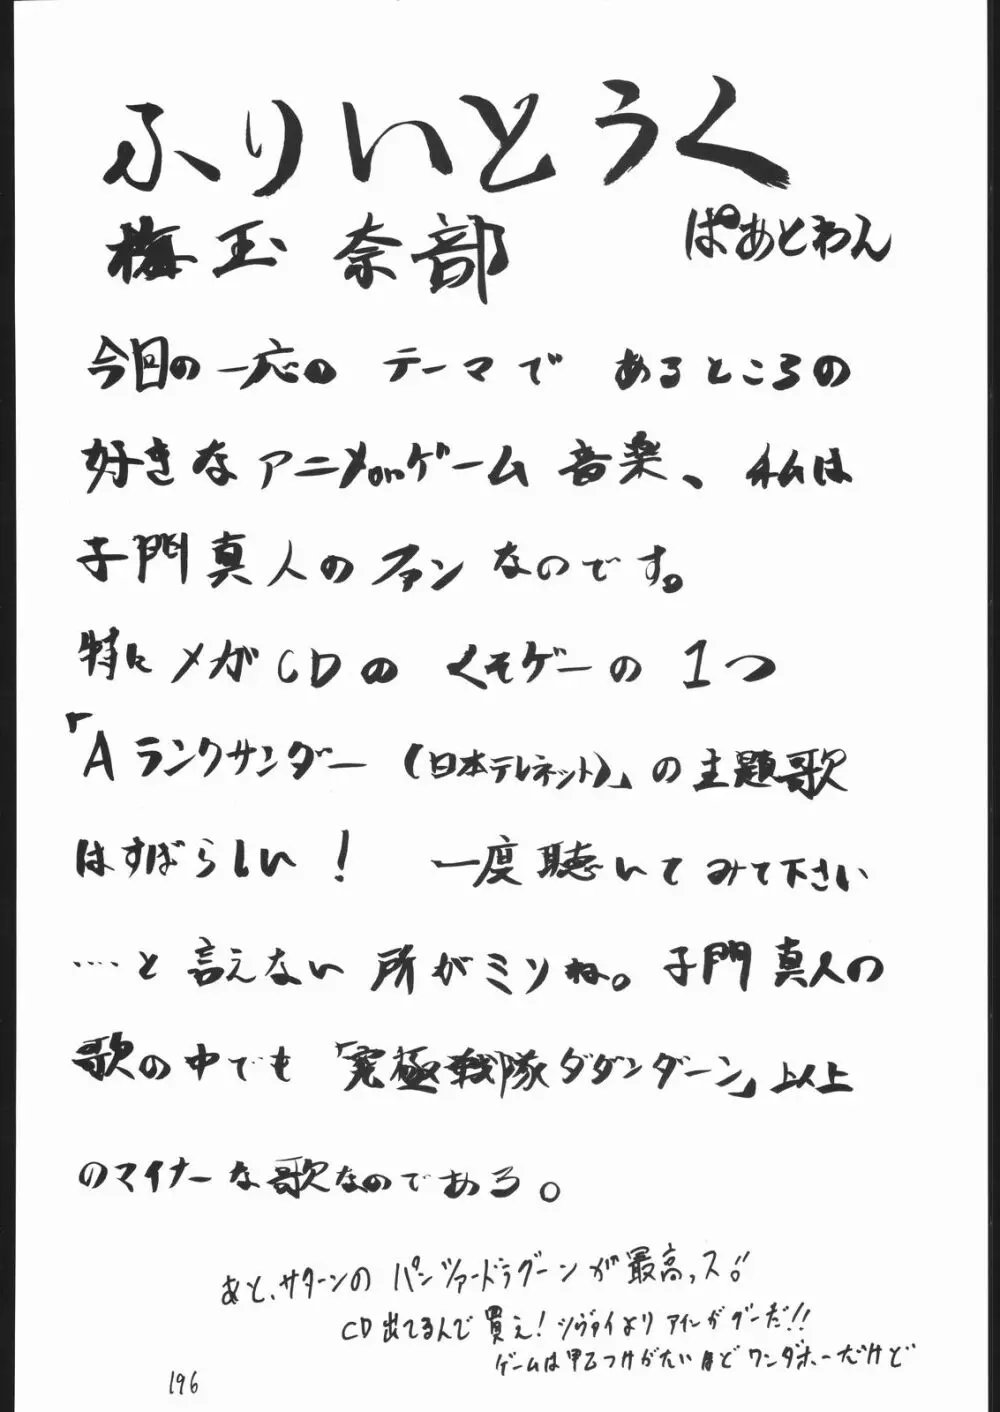 ふりいとうく
梅玉 奈部
ぱあとわん
今回の一応の テーマで あるところの
好きなアニメonゲーム 音楽、私は
子門真人のファンなのです。
特にメガCDの くそゲーの 1つ
「Aランクサンダー (日本テレネット)」の主題歌
はすばらしい! 一度聴いてみて下さい
....と 言えない 所がミソね。子門真人の
歌の中でも「究極戦隊ダダンダーン」以上
のマイナーな歌なのである。
あと、サターンの パンツァードラグーンが最高っス!!
CD出てるんで買え! ツヴァイより アインがグーだ!!
ゲームは甲乙つけがたいほど ワンダホーだけど
196